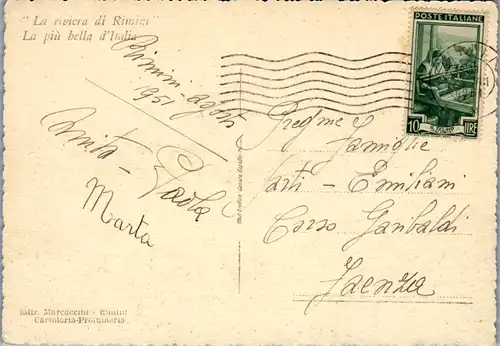 "La riviera di Rimini"
La più bella d'Italia
Rimini - agosto
1951
Anita - Paola
Marta
Ediz. Marcaccini - Rimini
Cartoleria-Profumeria
POSTE ITALIANE
10 LIRE
Pregme
Famiglie
Sarti - Emiliani
Corso Garibaldi
Faenza